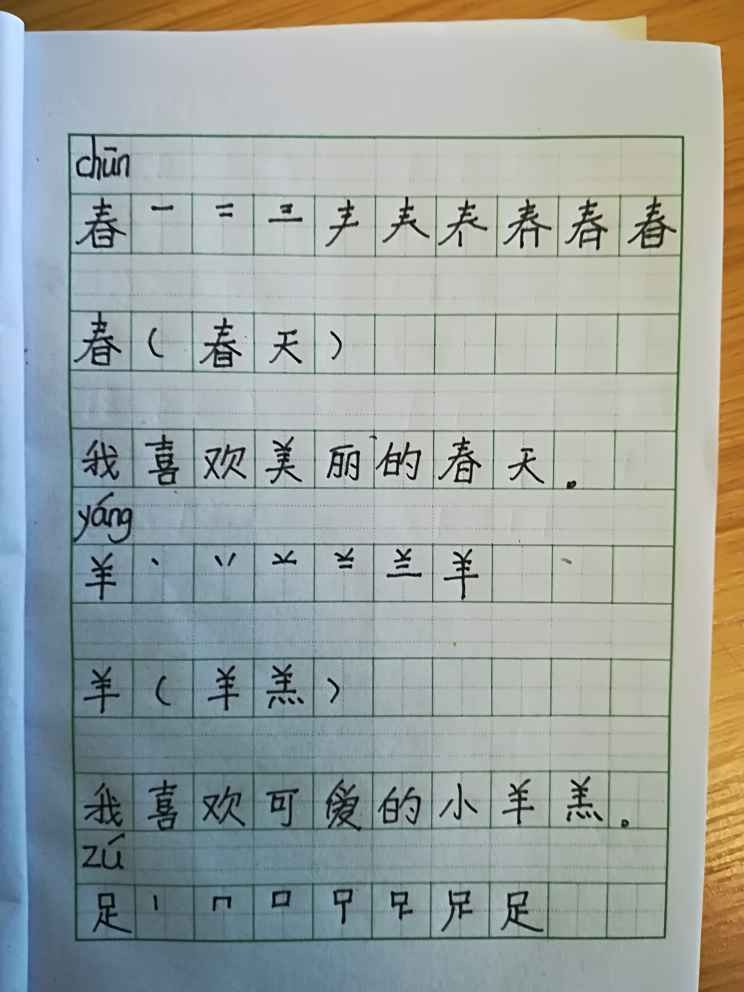 chūn
春 一 二 三 𡗗 春
春（春天）
我喜欢美丽的春天。
yáng
羊 丶 丷 羊
羊（羊羔）
我喜欢可爱的小羊羔。
zú
足 丨 冂 口 足